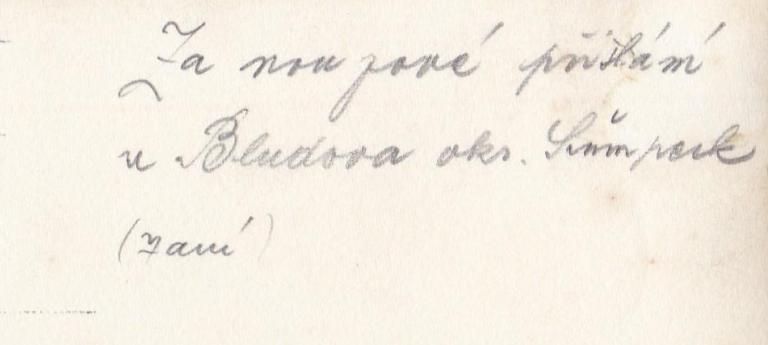 Za nouzové přistání
u Bludova okr. Šumperk